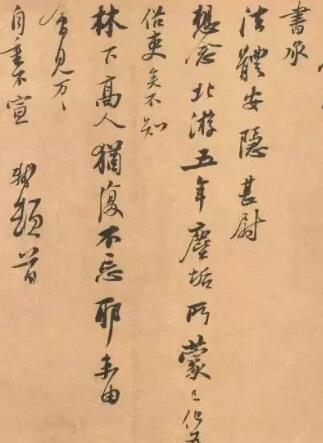 書承
法體安隱甚尉
想念北游五年塵垢所蒙已化爲
俗吏矣不知
林下高人猶復不忘耶未由
會見万万
自重不宣 軾頓首